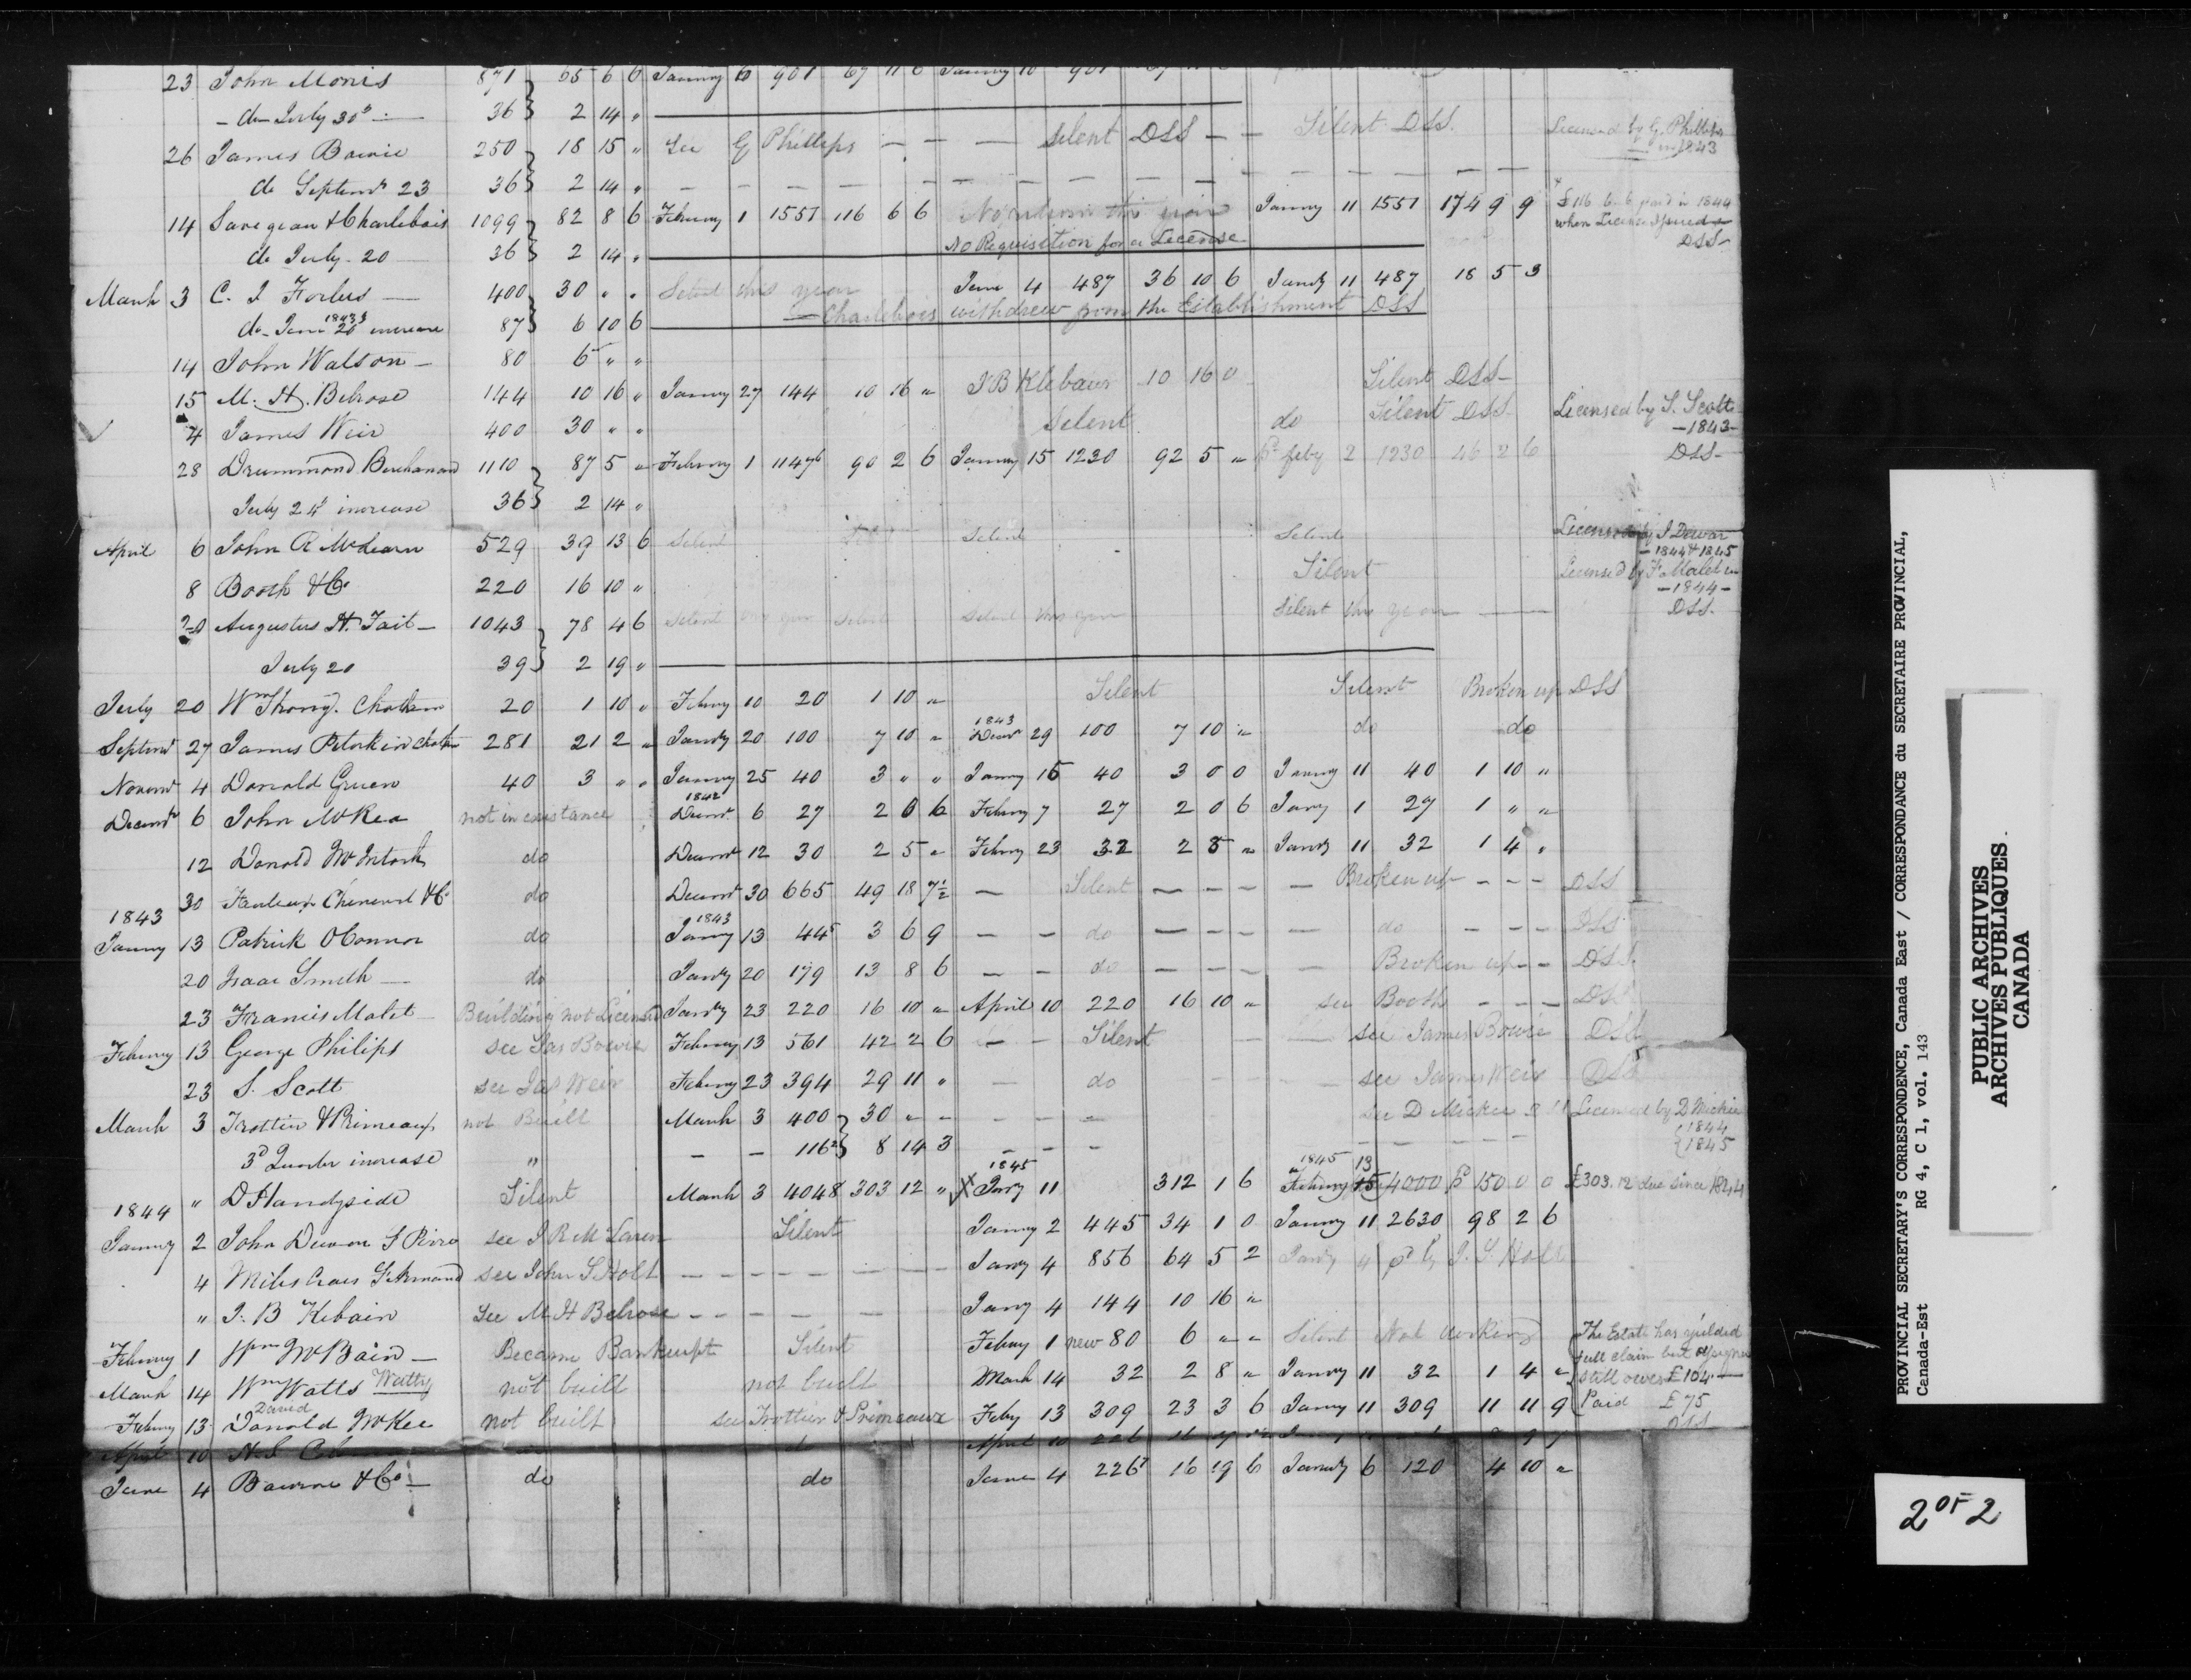 23 John Morris 871 65 6 6 Janury 10 901 67 11 6 Janury 10 901
- do July 30th - 36 2 14 "
26 James Bowie 250 18 15 " See G Phillips - - - Silent DSS - - Silent DSS. Licensed by G. Phillips in 1843
do Septemr 23 36 2 14 "
14 & Charlebois 1099 82 8 6 Febuary 1 1551 116 6 6 No return this year Janury 11 1551 174 9 9 £116. 6. 6 paid in 1844 when License Issued DSS
do July - 20 36 2 14 " No Requisition for a License
March 3 C. J Forbes 400 30 " " Silent this year June 4 487 36 10 6 Jandy 11 487 18 5 3
do June 20 1843 increase 87 6 10 6 Charlebois withdrew from the Establishment DSS
14 John Watson - 80 6 " "
15 M. H. Belrose 144 10 16 " Janury 27 144 10 16 " J B Klebaur 10 16 0 Silent DSS
4 James Weir 400 30 " " Silent do Silent DSS Licensed by S. Scott - 1843 -
28 Drummond Buchanan 1110 87 5 " Febuary 1 1147 6 90 2 6 Janury 15 1230 92 5 " pd feby 2 1230 46 2 6 DSS
July 24 increase 36 2 14 "
April 6 John R McLearn 529 39 13 6 Silent Silent Silent Licensed by J Dewar - 1844 & 1845
8 Booth & Co 220 16 10 " Silent Licensed by F. Malet in - 1844 -
20 Augustus H. Tait - 1043 78 4 6 Silent this year Silent Silent this year Silent this year DSS.
July 20 39 2 19 "
July 20 Wm Strong. Chatham 20 1 10 " Febury 10 20 1 10 " Silent Silent Broken up DSS
Septemr 27 James Peterkin Chathm 281 21 2 " Jandy 20 100 7 10 " 1843 Decemr 29 100 7 10 " do do
Novemr 4 Donald Gruen 40 3 " " Janury 25 40 3 " " Janury 15 40 3 0 0 Janury 11 40 1 10 "
Decemr 6 John McRea not in existance 1842 Decemr 6 27 2 0 6 Febury 7 27 2 0 6 Jany 1 27 1 " "
12 Donald McIntosh do Decemr 12 30 2 5 " Febury 23 32 2 8 " Jandy 11 32 1 4 "
30 & Co do Decemr 30 665 49 18 7½ - Silent - - - - Broken up - - - DSS
1843
Janury 13 Patrick OConnor do 1843 Janury 13 445 3 6 9 - - do - - - - do - - - DSS
20 Isaac Smith do Jandy 20 179 13 8 6 - - do - - - - Broken up - - DSS.
23 Francis Malet Building not Licensed Jandy 23 220 16 10 " April 10 220 16 10 " see Booth - - - DSS
Febury 13 George Philips see Jas Bowie Febury 13 561 42 2 6 - - Silent - - see James Bowie DSS
23 S. Scott see Jas Weir Febury 23 394 29 11 " - do - - - - see James Weir DSS
March 3 Trottier & Primeaux not Built March 3 400 30 " " - - - - see D Mickee Licensed by D Mickie 1844 1845
3d Quarter increase " - - 116 2 8 14 3 - - -
1844 " D Handyside Silent March 3 4048 303 12 " X 1845 Jany 11 312 1 6 1845 Febury 13 4000 pd 150 0 0 £303.12 due since 1844
Janury 2 John Dewar see J R McLaren Silent Janury 2 445 34 1 0 Janury 11 2630 98 2 6
4 Miles see John S. Holt - - - - - - - Jany 4 856 64 5 2 Jandy 4 pd by J. S Holt
" J. B Kebain see M. H Belrose - - - - - Jany 4 144 10 16 "
Febury 1 Wm McBain - Became Bankrupt Silent Febury 1 new 80 6 " " Silent Not working The Estate has yeilded full claim but assignee
March 14 Wm Watts Watty not built not built March 14 32 2 8 " Janury 11 32 1 4 " still owes £104
Febury 13 David Donald McKee not built see Trottier & Primeaux Feby 13 309 23 3 6 Janury 11 309 11 11 9 Paid £75 DSS
April 10 April 10 226
June 4 Bowron & Co - do do June 4 226 16 19 6 Jandy 6 120 4 10 "
PROVINCIAL SECRETARY'S CORRESPONDENCE, Canada East / CORRESPONDANCE du SECRETAIRE PROVINCIAL,
Canada-Est RG 4, C 1, vol. 143
PUBLIC ARCHIVES
ARCHIVES PUBLIQUES
CANADA
2 OF 2